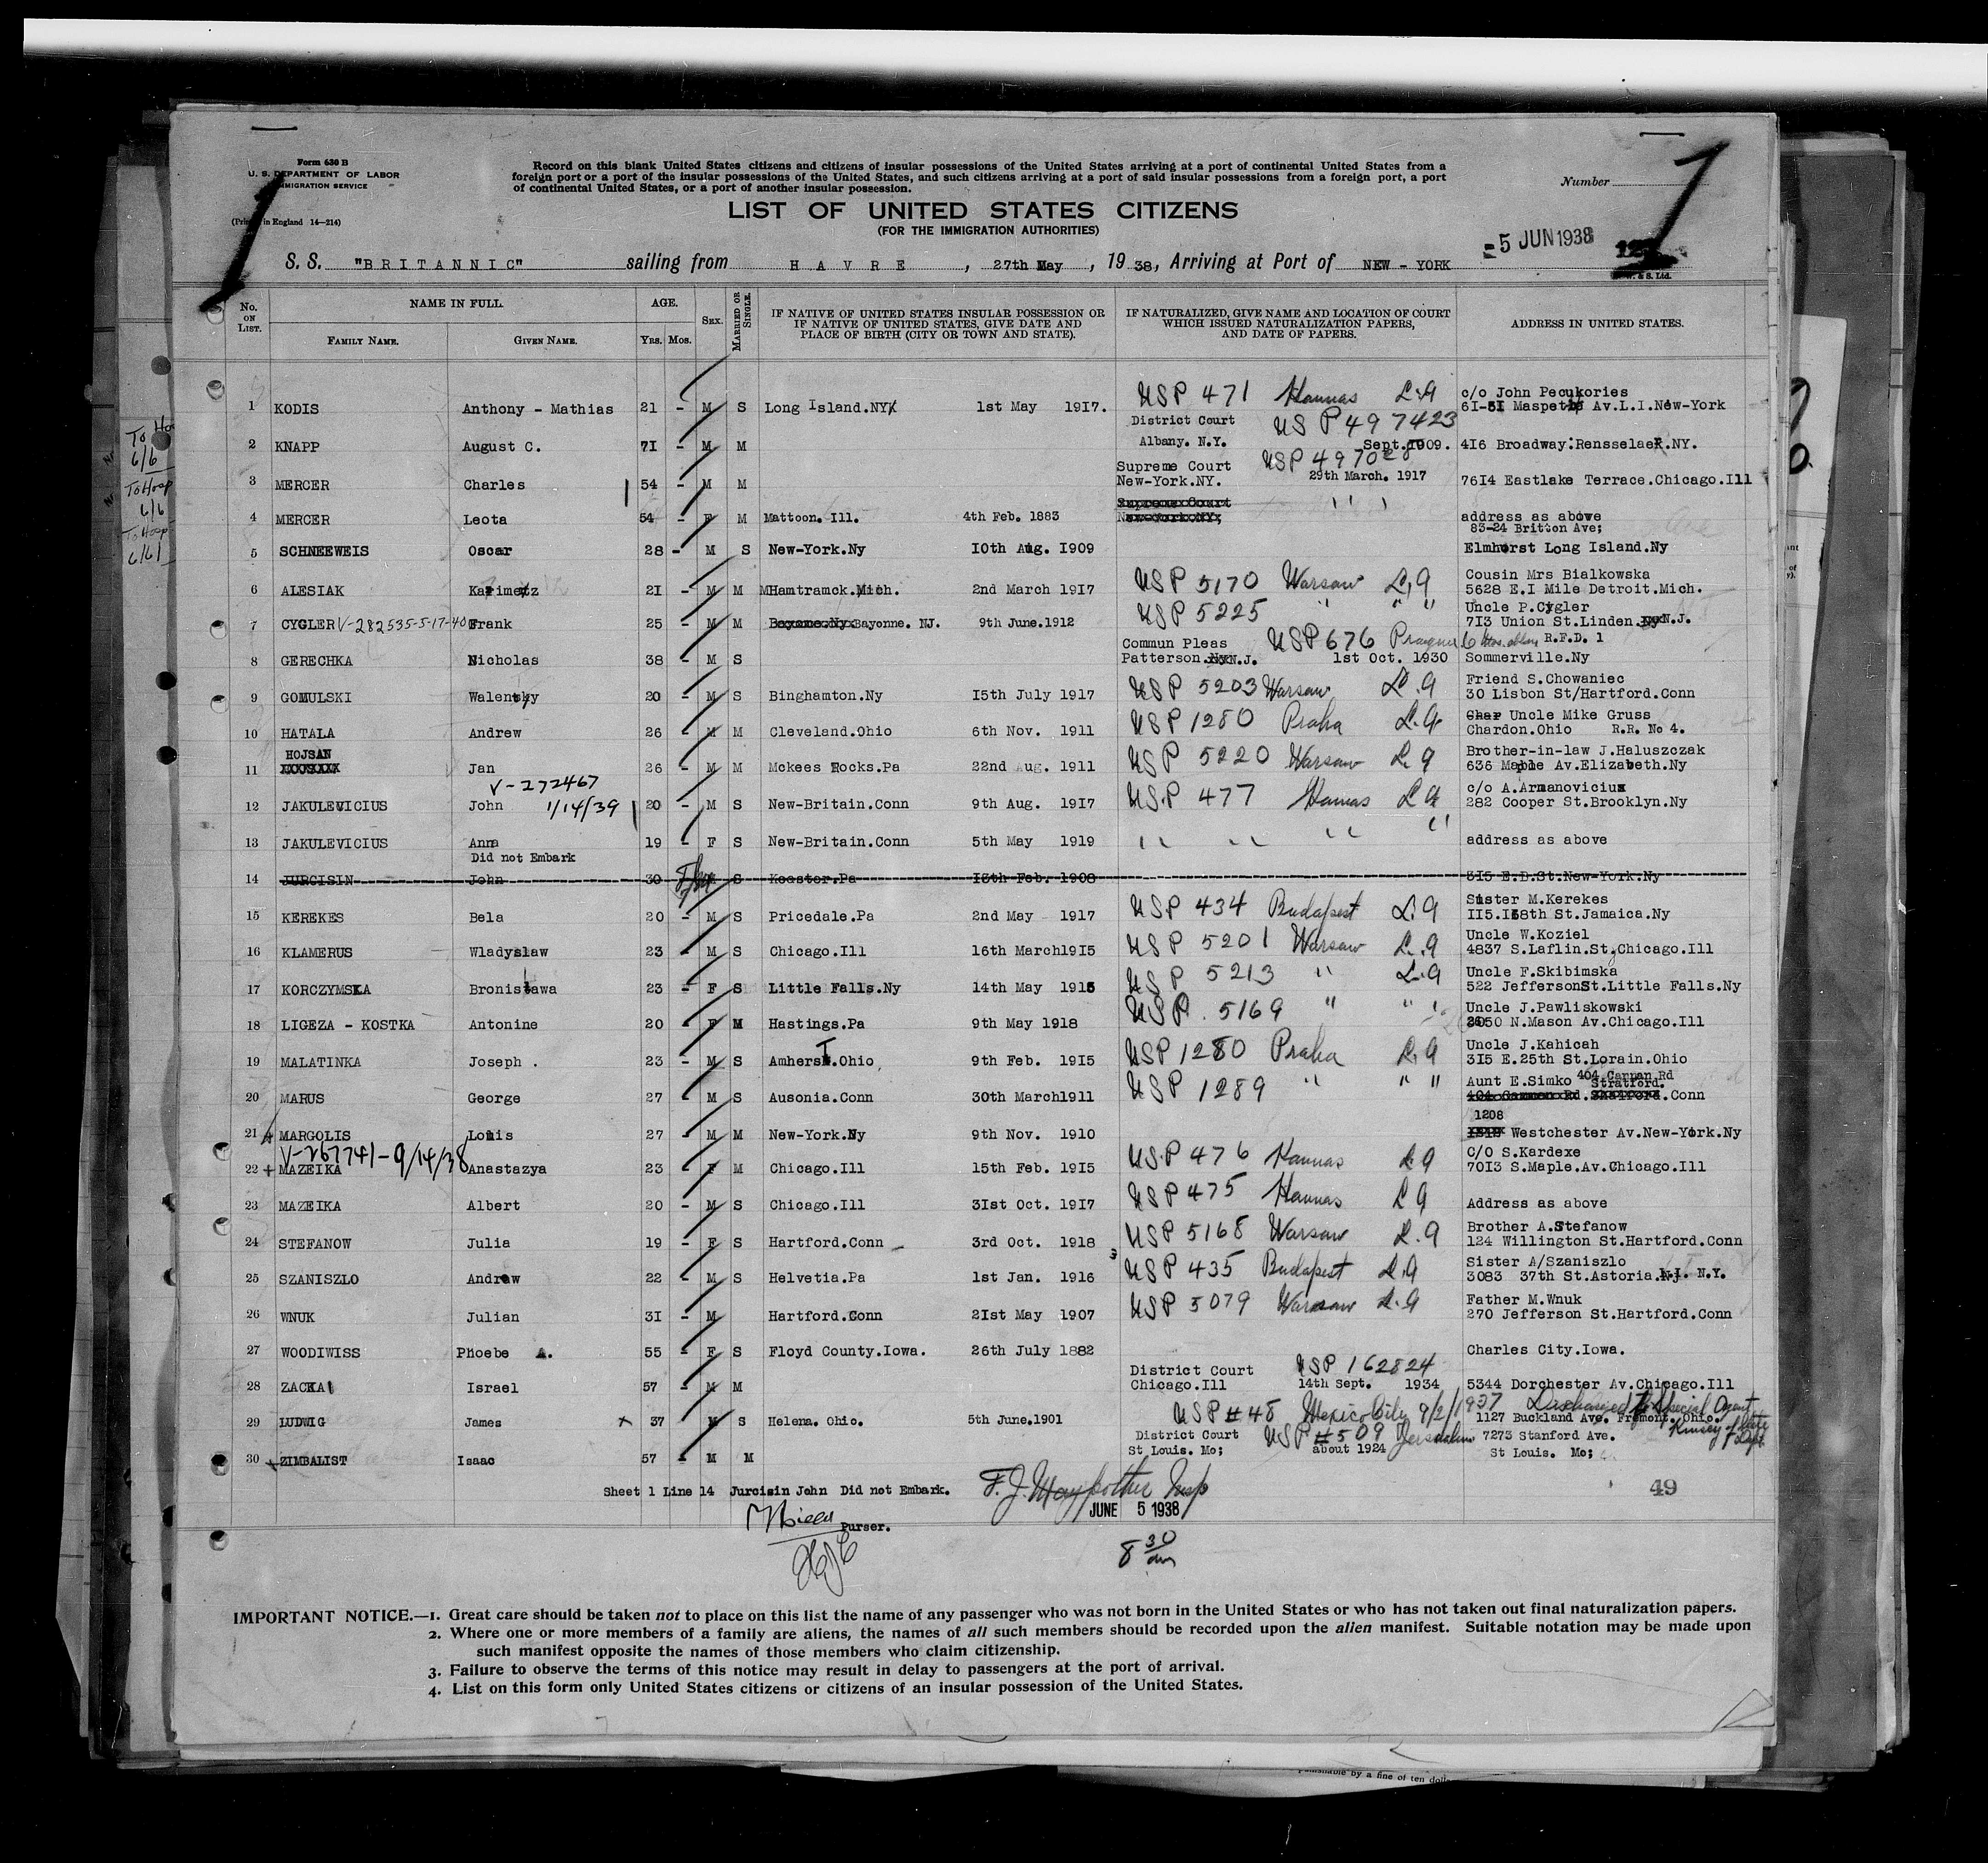 Form 630 B
U. S. DEPARTMENT OF LABOR
IMMIGRATION SERVICE
(Printed in England 14—214)
Record on this blank United States citizens and citizens of insular possessions of the United States arriving at a port of continental United States from a
foreign port or a port of the insular possessions of the United States, and such citizens arriving at a port of said insular possessions from a foreign port, a port
of continental United States, or a port of another insular possession.
Number
LIST OF UNITED STATES CITIZENS
(FOR THE IMMIGRATION AUTHORITIES)
5 JUN 1938
S. S. "BRITANNIC" sailing from HAVRE, 27th May, 1938, Arriving at Port of NEW - YORK
No. ON LIST. NAME IN FULL. AGE. SEX. MARRIED OR SINGLE. IF NATIVE OF UNITED STATES INSULAR POSSESSION OR IF NATIVE OF UNITED STATES, GIVE DATE AND PLACE OF BIRTH (CITY OR TOWN AND STATE). IF NATURALIZED, GIVE NAME AND LOCATION OF COURT WHICH ISSUED NATURALIZATION PAPERS, AND DATE OF PAPERS. ADDRESS IN UNITED STATES.
FAMILY NAME. GIVEN NAME. Yrs. Mos.
USP 471 Kaunas L.9 c/o John Pecukories
1 KODIS Anthony - Mathias 21 - M S Long Island.NY 1st May 1917. 61-51 Maspeth Av.L.I.New-York
District Court US P497423
2 KNAPP August C. 71 - M M Albany. N.Y. Sept.1909. 416 Broadway:Rensselaer.NY.
Supreme Court USP 497028
3 MERCER Charles 54 - M M New-York.NY. 29th March. 1917 7614 Eastlake Terrace.Chicago.Ill
Supreme Court
4 MERCER Leota 54 - F M Mattoon. Ill. 4th Feb. 1883 New-York.NY; address as above
83-24 Britton Ave;
5 SCHNEEWEIS Oscar 28 - M S New-York.Ny 10th Aug. 1909 Elmhurst Long Island.Ny
USP 5170 Warsaw L.9 Cousin Mrs Bialkowska
6 ALESIAK Kazimetz 21 - M M Hamtramck.Mich. 2nd March 1917 5628 E.I Mile Detroit.Mich.
USP 5225 " " " Uncle P.Cygler
7 CYGLER V-282535-5-17-40 Frank 25 - M M Bayonne. NJ. 9th June.1912 713 Union St.Linden. N.J.
Commun Pleas USP 676 Prague R.F.D. 1
8 GERECHKA Nicholas 38 - M S Patterson. N.J. 1st Oct. 1930 Sommerville.Ny
USP 5203 Warsaw L.9 Friend S.Chowaniec
9 GOMULSKI Walenty 20 - M S Binghamton.Ny 15th July 1917 30 Lisbon St/Hartford.Conn
USP 1280 Praha L.9 Char Uncle Mike Gruss
10 HATALA Andrew 26 - M M Cleveland.Ohio 6th Nov. 1911 Chardon.Ohio R.R. No 4.
HOJSAN USP 5220 Warsaw L.9 Brother-in-law J.Haluszczak
11 Jan 26 - M M Mckees Rocks.Pa 22nd Aug. 1911 636 Maple Av.Elizabeth.Ny
V-272467 USP 477 Kaunas L 9 c/o A.Armanovicius
12 JAKULEVICIUS John 1/14/39 20 - M S New-Britain.Conn 9th Aug. 1917 282 Cooper St.Brooklyn.Ny
13 JAKULEVICIUS Anna 19 - F S New-Britain.Conn 5th May 1919 " " " " address as above
Did not Embark
14 JURCISIN John 30 S Koaster.Pa 13th Feb. 1908 315 E.D.St.New-York.Ny
USP 434 Budapest L.9 Sister M.Kerekes
15 KEREKES Bela 20 - M S Pricedale.Pa 2nd May 1917 115.168th St.Jamaica.Ny
USP 5201 Warsaw L.9 Uncle W.Koziel
16 KLAMERUS Wladyslaw 23 - M S Chicago.Ill 16th March1915 4837 S.Laflin.St.Chicago.Ill
USP 5213 " L.9 Uncle F.Skibimska
17 KORCZYMSKA Bronislawa 23 - F S Little Falls.Ny 14th May 1915 522 JeffersonSt.Little Falls.Ny
USP. 5169 " " " Uncle J.Pawliskowski
18 LIGEZA - KOSTKA Antonine 20 - F M Hastings.Pa 9th May 1918 2050 N.Mason Av.Chicago.Ill
USP 1280 Praha L.9 Uncle J.Kahicah
19 MALATINKA Joseph . 23 - M S Amherst.Ohio 9th Feb. 1915 315 E.25th St.Lorain.Ohio
USP 1289 " " " Aunt E.Simko 404 Carman Rd Stratford.
20 MARUS George 27 - M S Ausonia.Conn 30th March1911 404 Carman Rd. Stratford.Conn
1208
21 MARGOLIS Louis 27 - M M New-York.Ny 9th Nov. 1910 Westchester Av.New-York.Ny
V-267741-9/14/38 USP 476 Kaunas L.9 C/O S.Kardexe
22 + MAZEIKA Anastazya 23 - F M Chicago.Ill 15th Feb. 1915 7013 S.Maple.Av.Chicago.Ill
USP 475 Kaunas L 9
23 MAZEIKA Albert 20 - M S Chicago.Ill 31st Oct. 1917 Address as above
USP 5168 Warsaw L.9 Brother A.Stefanow
24 STEFANOW Julia 19 - F S Hartford.Conn 3rd Oct. 1918 124 Willington St.Hartford.Conn
USP 435 Budapest L.9 Sister A/Szaniszlo
25 SZANISZLO Andrew 22 - M S Helvetia.Pa 1st Jan. 1916 3083 37th St.Astoria. L.I. N.Y.
USP 5079 Warsaw L.9 Father M.Wnuk
26 WNUK Julian 31 - M Hartford.Conn 21st May 1907 270 Jefferson St.Hartford.Conn
27 WOODIWISS Phoebe A. 55 - F S Floyd County.Iowa. 26th July 1882 Charles City.Iowa.
District Court USP 162824
28 ZACKA Israel 57 - M M Chicago.Ill 14th Sept. 1934 5344 Dorchester Av.Chicago.Ill
USP #48 Mexico City 9/2/1937 Discharged to Special Agent Kinsey of State Dept.
29 LUDWIG James x 37 M S Helena. Ohio. 5th June.1901 1127 Buckland Ave. Fremont. Ohio.
District Court USP #509 Jerusalem 7273 Stanford Ave.
30 ZIMBALIST Isaac 57 - M M St Louis. Mo; about 1924 St Louis. Mo;
Sheet 1 Line 14 Jurcisin John Did not Embark. F. J. Maypother Insp
49
JUNE 5 1938
Purser.
8 30 am
IMPORTANT NOTICE.—1. Great care should be taken not to place on this list the name of any passenger who was not born in the United States or who has not taken out final naturalization papers.
2. Where one or more members of a family are aliens, the names of all such members should be recorded upon the alien manifest. Suitable notation may be made upon
such manifest opposite the names of those members who claim citizenship.
3. Failure to observe the terms of this notice may result in delay to passengers at the port of arrival.
4. List on this form only United States citizens or citizens of an insular possession of the United States.